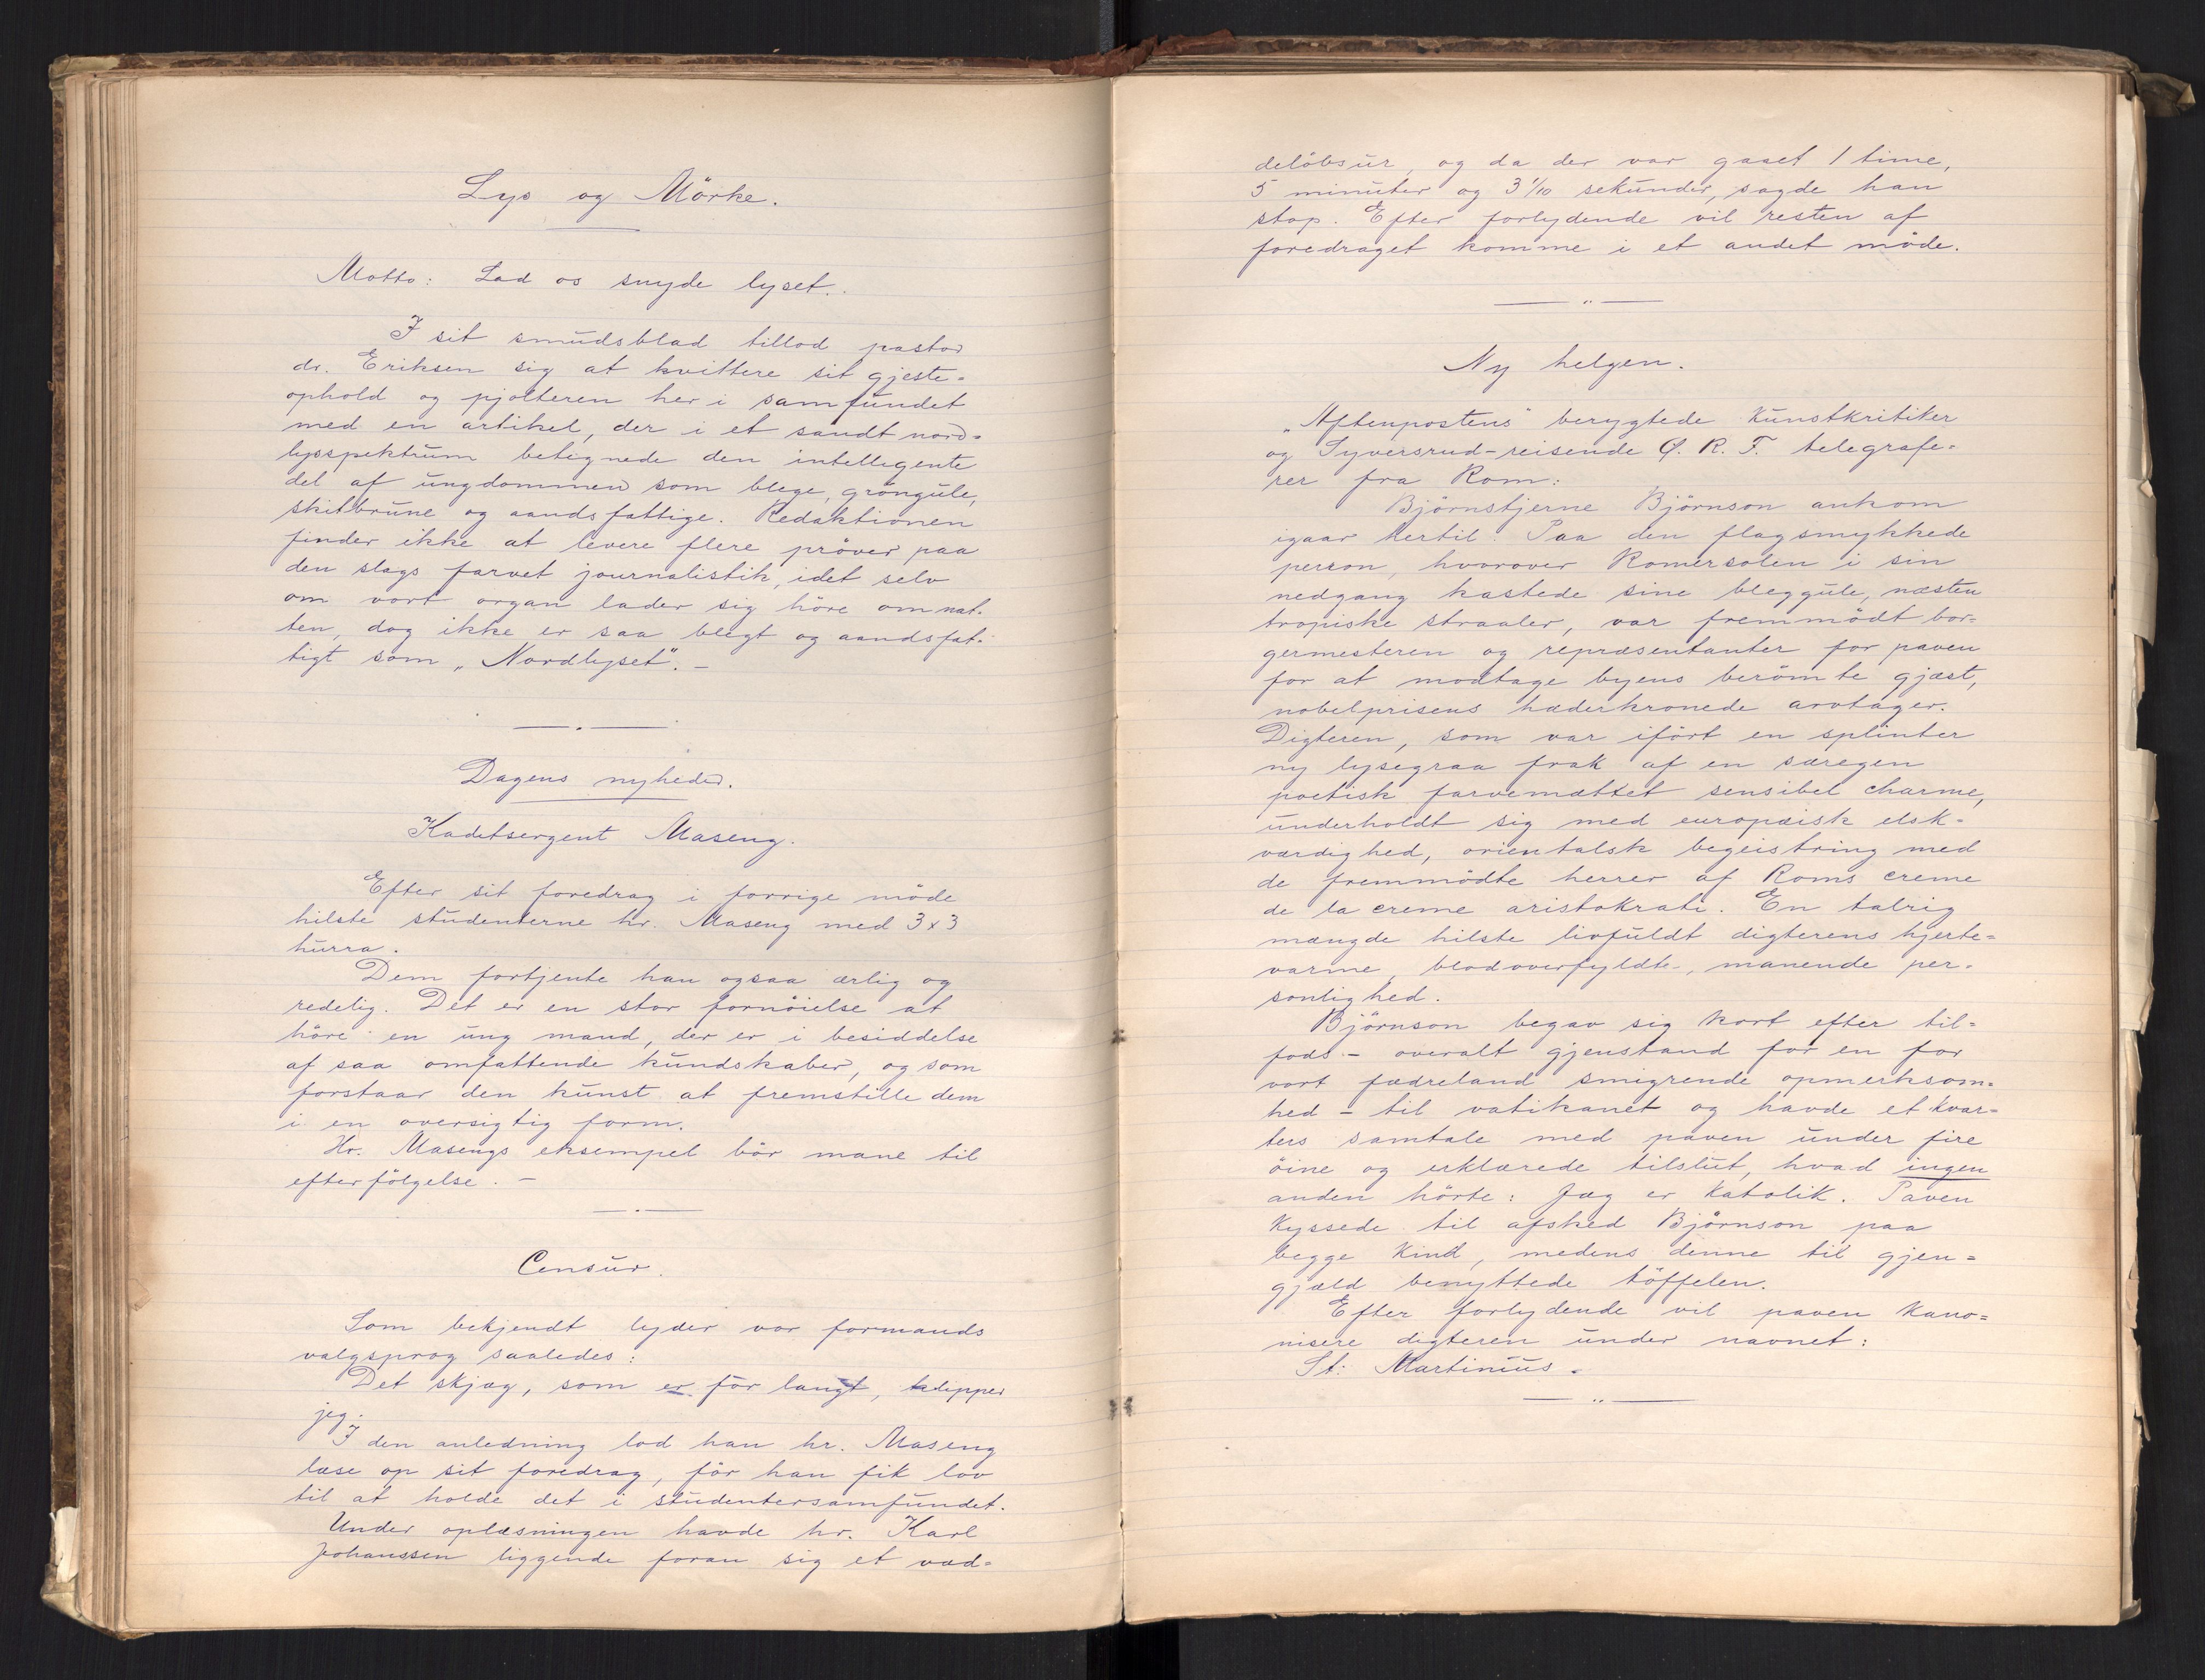 Lys og Mörke.
Motto: Lad os snyde lyset.
I sit smudsblad tillod pastor
dr. Eriksen sig at kvittere sit gjeste-
ophold og pjolteren her i samfundet
med en artikel, der i et sandt nord-
lysspektrum betegnede den intelligente
del af ungdommen som blege, gröngule,
skitbrune og aandsfattige. Redaktionen
finder ikke at levere flere pröver paa
den slags farvet journalistik, idet selv
om vort organ lader sig höre om nat-
ten, dog ikke er saa blegt og aandsfat-
tigt som „Nordlyset". -
Dagens nyheder.
Kadetsergent Maseng.
Efter sit foredrag i forrige möde
hilste studenterne hr. Maseng med 3x3
hurra.
Dem fortjente han ogsaa ærlig og
redelig. Det er en stor fornöielse at
höre en ung mand, der er i besiddelse
af saa omfattende kundskaber, og som
forstaar den kunst at fremstille dem
i en oversigtig form.
Hr. Masengs eksempel bör mane til
efterfölgelse. -
Censur.
Som bekjendt lyder vor formands
valgsprog saaledes:
Det skjæg, som er for langt, klipper
jeg.
I den anledning lod han hr. Maseng
læse op sit foredrag, för han fik lov
til at holde det i studentersamfundet.
Under oplæsningen havde hr. Karl
Johanssen liggende foran sig et væd-
delöbsur, og da der var gaaet 1 time,
5 minuter og 3 1/10 sekunder, sagde han
stop. Efter forlydende vil resten af
foredraget komme i et andet möde.
Ny helgen.
„Aftenpostens" berygtede kunstkritiker
og Syversrud-reisende Q. R. F. telegrafe-
rer fra Rom:
Björnstjerne Björnson ankom
igaar hertil. Paa den flagsmykkede
perron, hvorover Romersolen i sin
nedgang kastede sine bleggule, næsten
tropiske straaler, var fremmödt bor-
germesteren og repræsentanter for paven
for at modtage byens berömte gjæst,
nobelprisens hæderkronede arvtager.
Digteren, som var ifört en splinter
ny lysegraa frak af en særegen
poetisk farvemættet sensibel charme,
underholdt sig med europæisk elsk-
værdighed, orientalsk begeistring med
de fremmödte herrer af Roms creme
de la creme aristokrati. En talrig
mængde hilste livfuldt digterens hjerte-
varme, blodoverfyldte, manende per-
sonlighed.
Björnson begav sig kort efter til-
fods - overalt gjenstand for en for
vort fædreland smigrende opmerksom-
hed - til vatikanet og havde et kvar-
ters samtale med paven under fire
öine og erklærede tilslut, hvad ingen
anden hörte: Jæg er katolik. Paven
kyssede til afsked Björnson paa
begge kind, medens denne til gjen-
gjæld benyttede töffelen.
Efter forlydende vil paven kano-
nisere digteren under navnet:
St: Martinius.